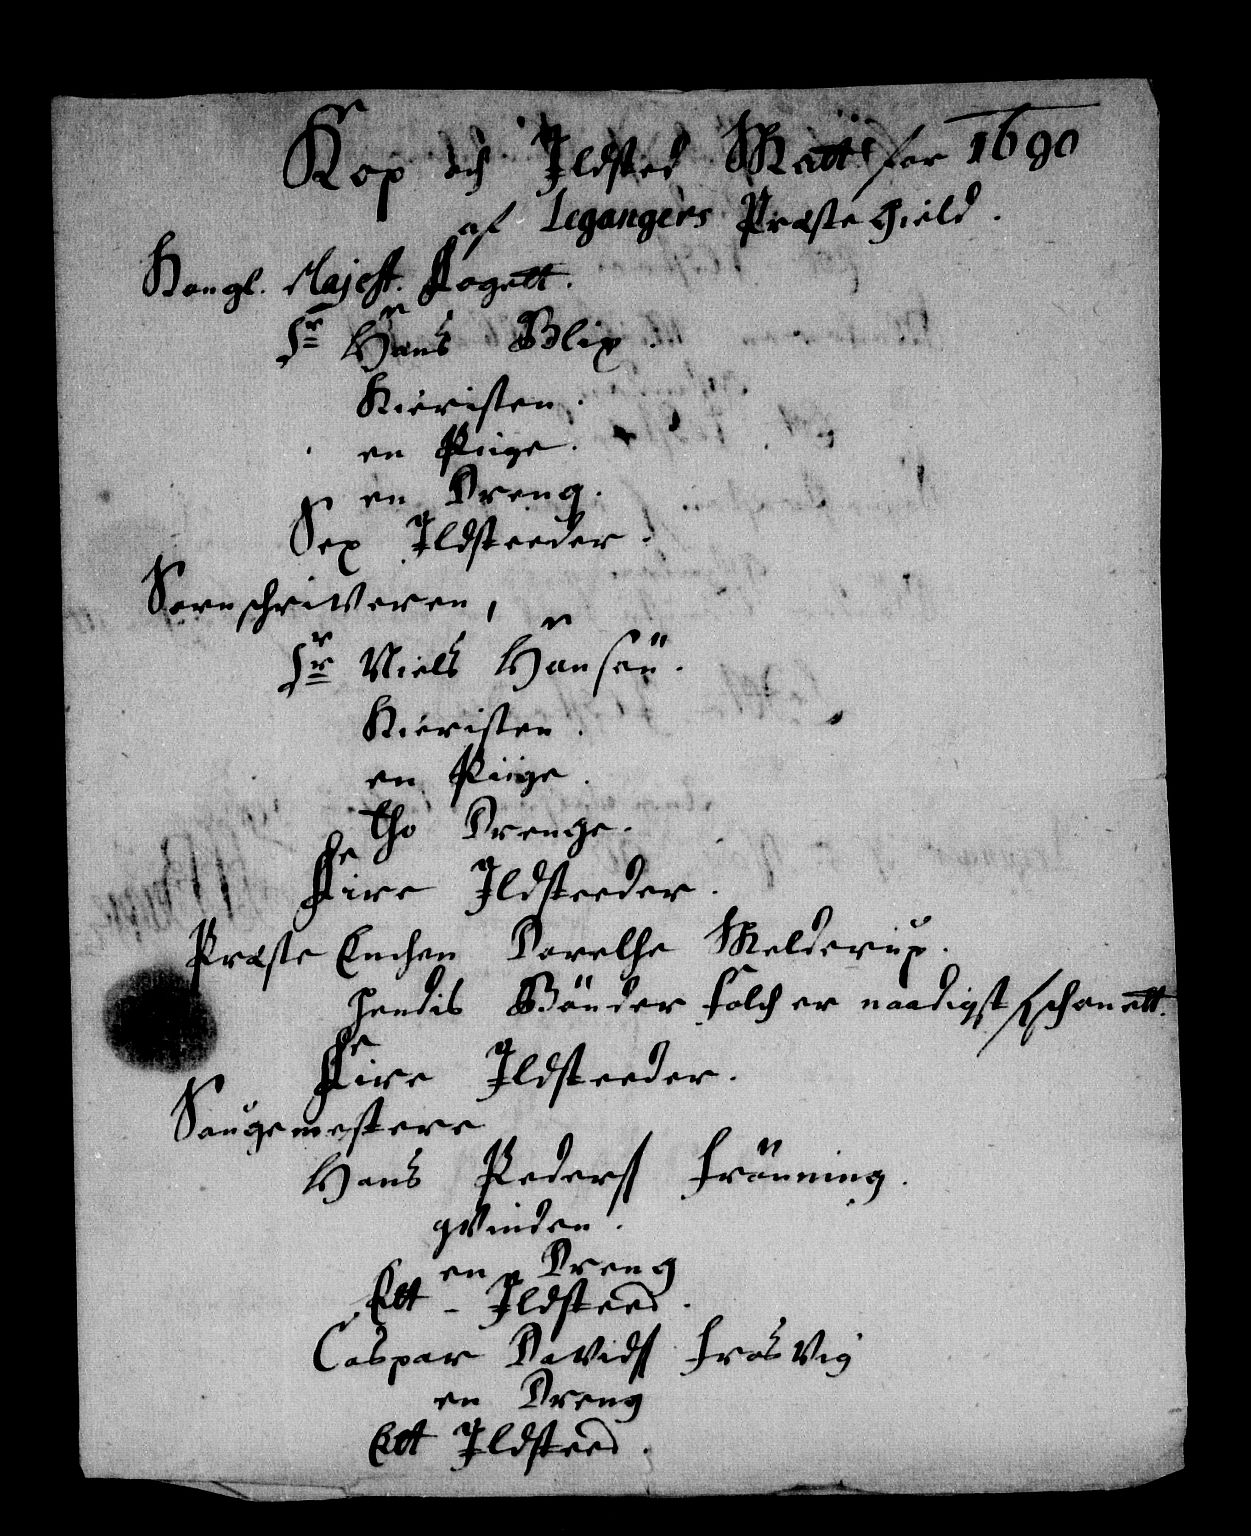 Kop och Ildsted Skatt for 1690
af Legangers Præstegield.
Kongl. Majest. Fogett.
Sr Hans Blix.
Kieristen.
en Piige.
en Dreng.
Sex Ildsteeder.
Sornschriweren,
Sr Niels Hansen.
Kieristen.
en Piige.
Tho Drenge.
Fire Ildsteeder.
Præste Enchen Dorethe Melderup.
hendis Bönder folch er naadigst schonett.
Fire Ildsteeder.
Saugemestere
Hans Peders Frönning.
qvinden.
en Dreng
Ett - Ildsteed.
Caspar Davids Frösvig
en Dreng
Ett Ildsteed.